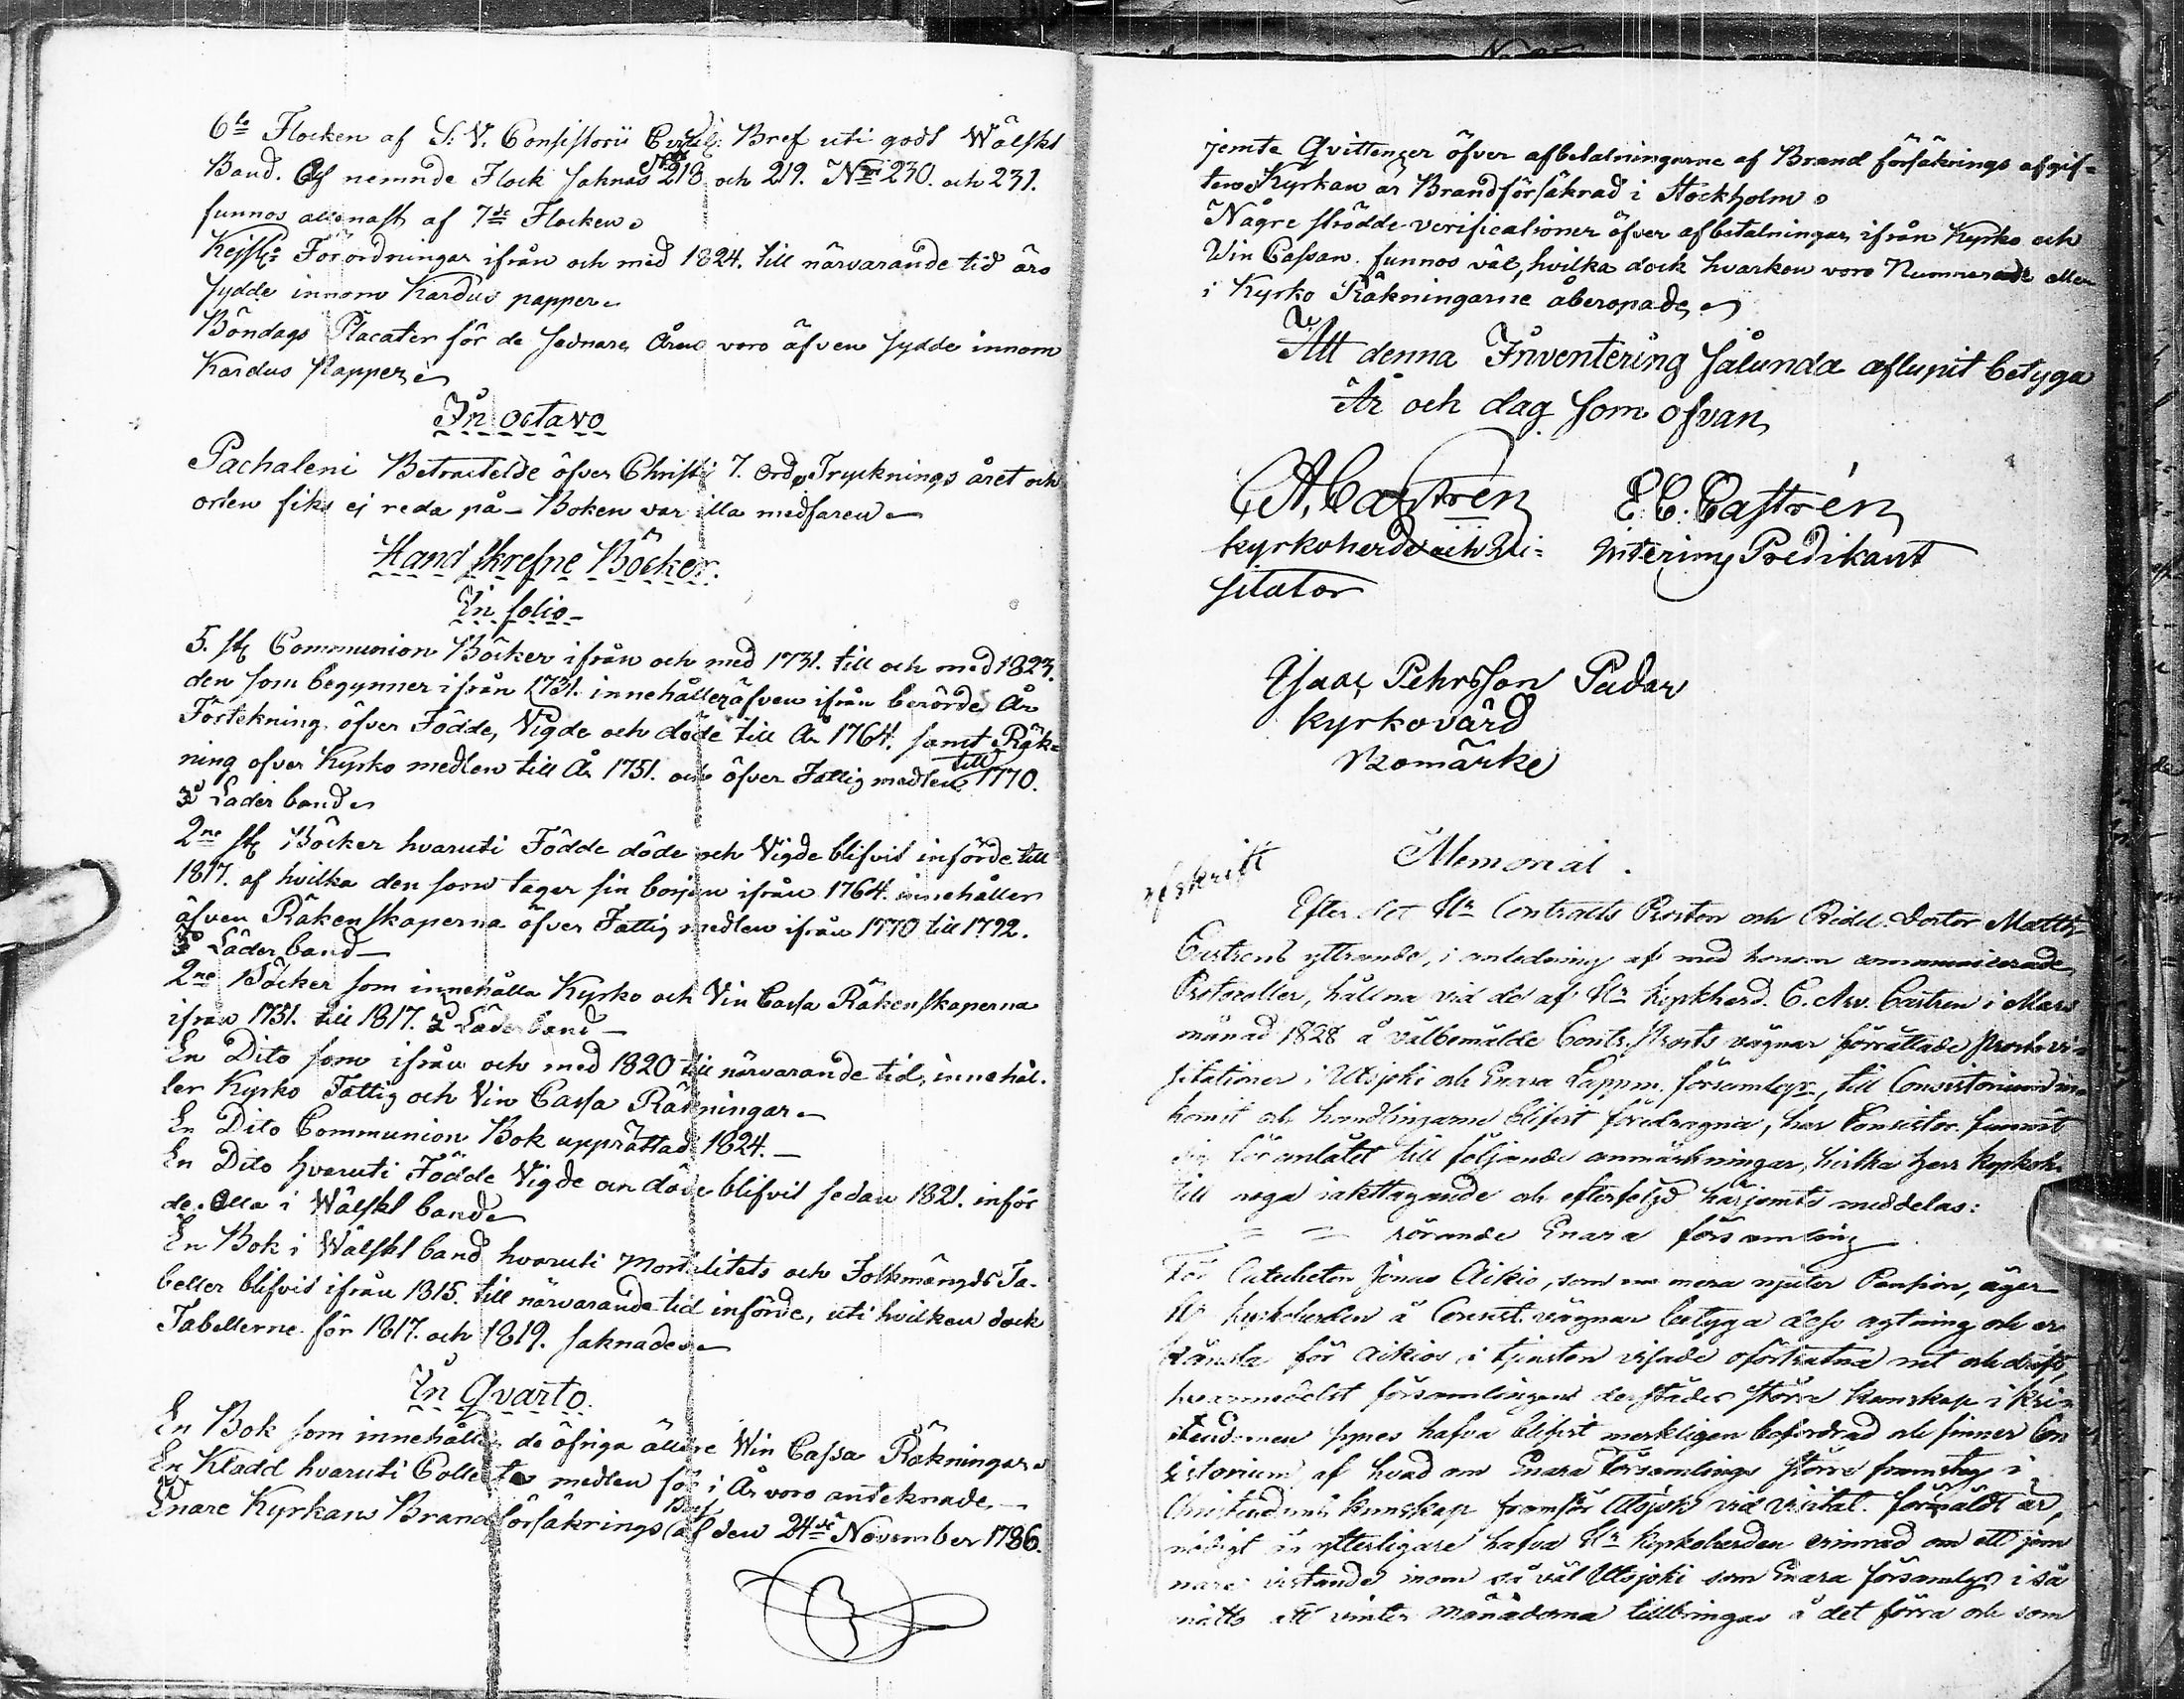 6te Flocken af S: V. Consistorii Circul: Bref uti godt Wälskt
Band. Af nemnde Flock saknas Nris 218 och 219. Nris 230. och 231.
funnos allenast af 7de Flocken.
Kejsl: Förordningar ifrån och med 1824. till närvarande tid äro
sydde innom Kardus papper.
Böndags Placater för de sednare Åren voro äfven sydde innom
Kardus Papper.
In octavo
Pachaleni Betractelde öfver Christi 7. Ord, Trycknings året och
orten fiks ej reda på – Boken var illa medfaren –
Hand skrefne Böcker.
In folio –
5. st. Communion Böcker ifrån och med 1731. till och med 1823.
den som begynner ifrån 1731. innehåller äfven ifrån berörde År
Förtekning öfver Födde, Vigde och döde till År 1764. samt Räk-
ning öfver Kyrko medlen till År 1751. och öfver Fattig medlen till 1770.
i Läder band.
2ne st. Böcker hvaruti Födde döde och Vigde blifvit införde till
1817. af hvilka den som tager sin börjen ifrån 1764. innehåller
äfven Räkenskaperna öfver Fattig medlen ifrån 1770 till 1792.
i Läder band –
2ne Böcker som innehålla Kyrko och Vin Cassa Räkenskaperna
ifrån 1731. till 1817. i Läder band –
En Dito som ifrån och med 1820 till närvarande tid, innehål-
ler Kyrko Fattig och Vin Cassa Räkningar –
En Dito Communion Bok upprättad 1824. –
En Dito hvaruti Födde Vigde och döde blifvit sedan 1821. inför
de. Alla i Wälskt band.
En Bok i Wälskt band hvaruti Mortalitets och Folkmängds Ta-
beller blifvit ifrån 1815. till närvarande tid införde, uti hvilken dock
Tabellerne för 1817. och 1819. saknades.
In Qvarto.
En Bok som innehåller de öfriga äldre Win Cassa Räkningar.
En Kladd hvaruti Collecte medlen för i År voro anteknade, –
Enare Kyrkans Brandförsäkrings Bref af den 24de November 1786.
jemte Qvittenzer öfver afbetalningarne af Brand försäkrings afgif-
ten. Kyrkan är Brandförsäkrad i Stockholm.
Någre strödde verificationer öfver afbetalningar ifrån Kyrko och
Vin Cassan funnos väl, hvilka dock hvarken voro Numerade eller
i Kyrko Räkningarne åberopade.
Att denna Inventering sålunda aflupit betyga
År och dag som ofvan
C A. Castrén E. C. Castrén
Kyrkoherde och Vi- Interims Predikant
sitator
Isaac Pehrsson Padar
Kyrkovärd
Bomärke
Afskrift Memorial.
Efter det Hr Contracts Prosten och Ridd. Doctor Matth.
Castréns yttrande, i anledning af med honom communicerade
Protocoller, hållna vid de af Hr Kyrkherd. C. Arv. Castren i Mars
månad 1828 å välbemälde Contr. Prosts vägnar förrättade Prostevi-
sitationer i Utsjoki och Enara Lappm. församlgr, till Consistorium in-
komit och handlingarne blifvit föredragna, har Consistor. funnit
sig föranlåtet till följande anmärkningar, hvilka herr Kyrkoh.
till noga iakttagande och efterfölgd härjemte meddelas:
= = rörande Enara församling
För Catecheten Jonas Aikio, som nu mera njuter Pension, äger
Hr Kyrkoherden å Consist. vägnar betyga dess agtning och er
känsla för Aikios i tjensten visade oförtrutna nit och drift,
hvarmedelst församlingens derstädes större kunskap i Kri-
stendomen synes hafva blifvit merkligen befordrad och finner Con
sistorium af hvad om Enara Församlings större framsteg i
Christendoms kunskap framför Utsjoki vid Visitat. förmäldt är,
nödigt at ytterligare hafva Hr Kyrkoherden erinrad om ett jem
nare vistande inom så väl Utsjoki som Enara församlgr i så
måtto att vinter månaderna tillbringas å det förra och som